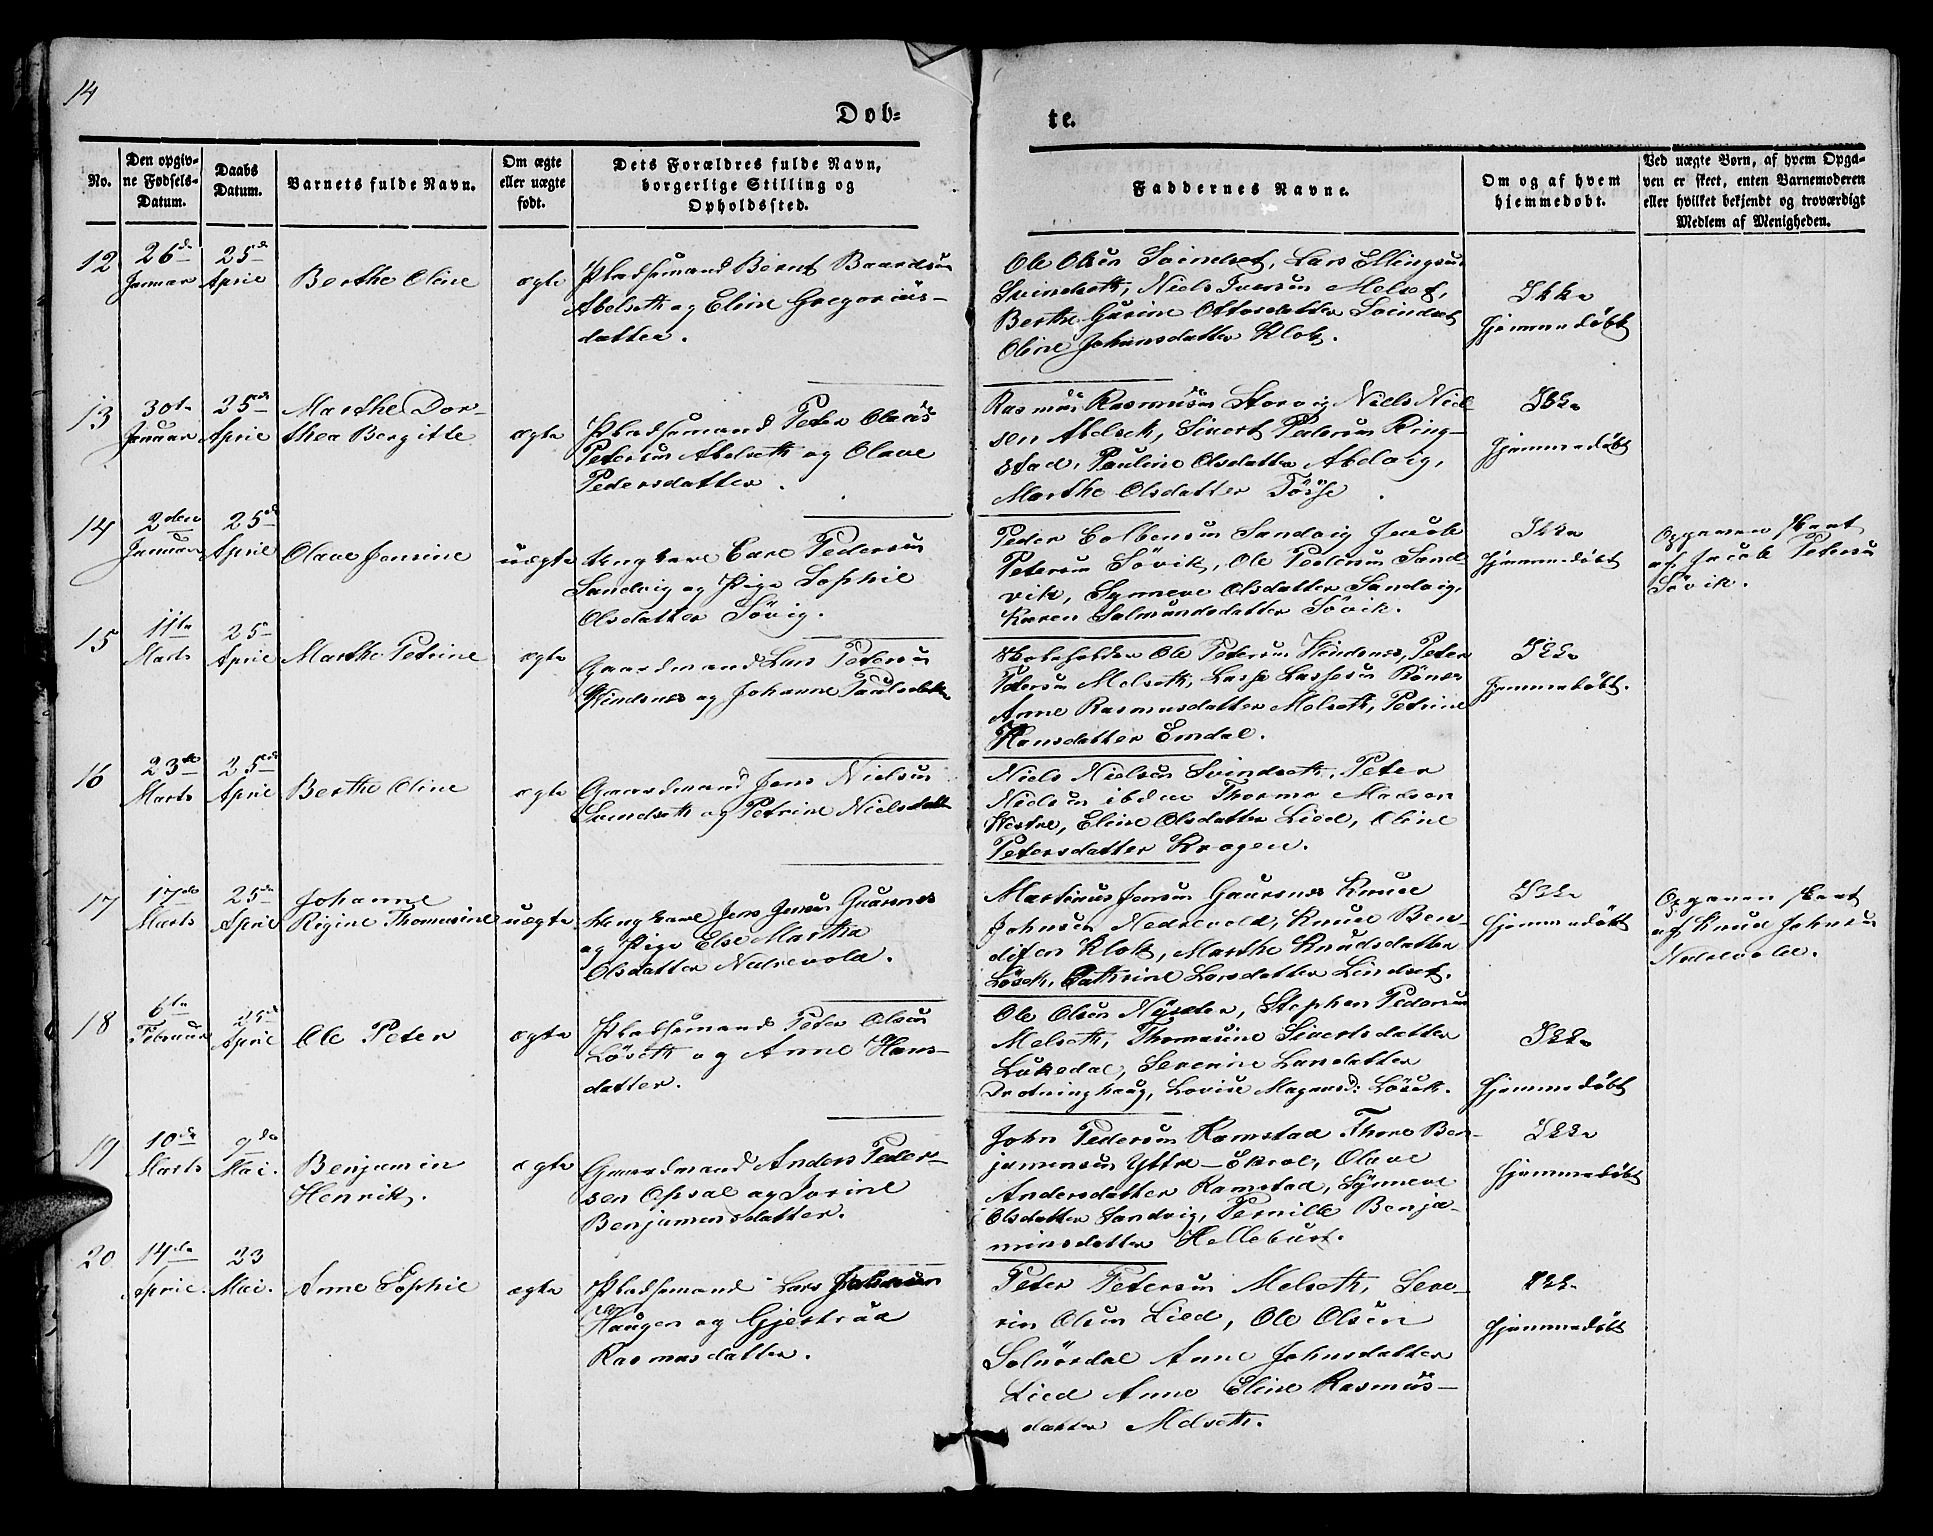 14
Døb=
te.
No.
Den opgiv-
ne Fødsels-
Datum.
Daabs
Datum.
Barnets fulde Navn.
Om ægte
eller uægte
født.
Dets Forældres fulde Navn,
borgerlige Stilling og
Opholdssted.
Faddernes Navne.
Om og af hvem
hjemmedøbt.
Ved uægte Børn, af hvem Opga-
ven er skeet, enten Barnemoderen
eller hvilket bekjendt og troværdigt
Medlem af Menigheden.
12
26de
Januar
25de
April
Berthe Oline
ægte
Pladsemand Bernt Baardsen
Abelseth og Eline Gregorius-
datter.
Ole Olsen Svindset, Lars Ellingsen
Svindseth, Niels Iversen Melset,
Berthe Gurine Ottosdatter Svindset
Oline Johansdatter Klok.
Ikke
hjemmedøbt
13
30te
Januar
25de
April
Marthe Dor-
thea Bergitte
ægte
Pladsemand Peter Olaus
Petersen Abelseth og Olave
Pedersdatter.
Rasmus Rasmusen Storvig Niels Niel
sen Abelset, Sivert Pedersen Ring-
stad, Pauline Olsdatter Abelvig,
Marthe Olsdatter Tøsse.
Ikke
hjemmedøbt
14
2den
Januar
25de
April
Olave Jensine
uægte
Ungkarl Carl Pedersen
Sandvig og Pige Sophie
Olsdatter Søvig.
Peder Colbensen Sandvig Jacob
Petersen Søvik, Ole Pedersen Sand
vik, Synneve Olsdatter Sandvig,
Karen Salmundsdatter Søvik.
Ikke
hjemmedøbt
Opgaven skeet
af Jacob Petersen
Søvik.
15
11te
Marts
25
April
Marthe Petrine
ægte
Gaardmand Lars Petersen
Vindsnes og Johanne Paulsdatter
Ole Petersen Vindsnes, Peter
Petersen Melseth, Lasse Lassesen Rønes
Anne Rasmusdatter Melseth, Petrine
Hansdatter Emdal.
Ikke
hjemmedøbt.
16
23de
Marts
25de
April
Berthe Oline
ægte
Gaardmand Jens Nielsen
Svindseth og Petrine Nielsdatt
Niels Nielsen Svindseth, Peter
Nielsen ibdm Thormo Madsen
Vestre, Eline Olsdatter Lied, Oline
Petersdatter Kragen.
17
17de
Marts
25de
April
Johanne
Rigine Thomasine
uægte
Ungkarl Jens Jensen Gaarsnes
og Pige Else Martha
Olsdatter Nedrevold.
Martinus Jensen Gaarsnes Knud
Johnsen Nedrevold, Knud Ben-
ditsen Klok, Marthe Knudsdatter
Løset, Cathrine Larsdatter Lindset.
Ikke
hjemmedøbt
Opgaven skeet
af Knud Johnsen
Nedrevold.
18
6te
Februar
25de
April
Ole Peter
ægte
Pladsemand Peter Olsen
Løseth og Anne Hans-
datter.
Ole Olsen Nysæter, Stephen Pedersen
Melseth, Thomasine Sivertsdatter
Lukedal, Severine Larsdatter
Drotninghaug, Lovise Magnusd: Løsek.
Ikke
hjemmedøbt
19
10de
Marts
9de
Mai.
Benjamin
Henrik.
ægte
Gaardmand Anders Peder-
sen Opsal og Jorine
Benjaminsdatter.
John Pedersen Ramstad Thore Ben-
jaminsen Yttre-Ekrol, Olave
Andersdatter Ramstad, Synneve
Olsdatter Sandvig, Pernille Benja-
minsdatter Hellebust.
Ikke
hjemmedøbt
20
14de
April.
23
Mai.
Anne Sophie
ægte
Pladsemand Lars Johnsen
Haugen og Gjertrud
Rasmusdatter.
Peter Petersen Melseth, Seve-
rin Olsen Lied, Ole Olsen
Solnørdal Anne Johnsdatter
Lied Anne Eline Rasmus-
datter Melseth.
Ikke
hjemmedøbt